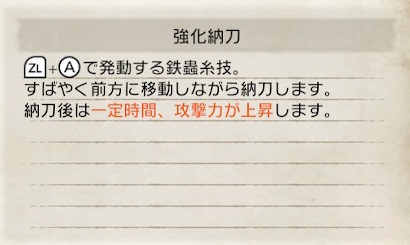 強化納刀
ZL+Aで発動する鉄蟲糸技。
すばやく前方に移動しながら納刀します。
納刀後は一定時間、攻撃力が上昇します。